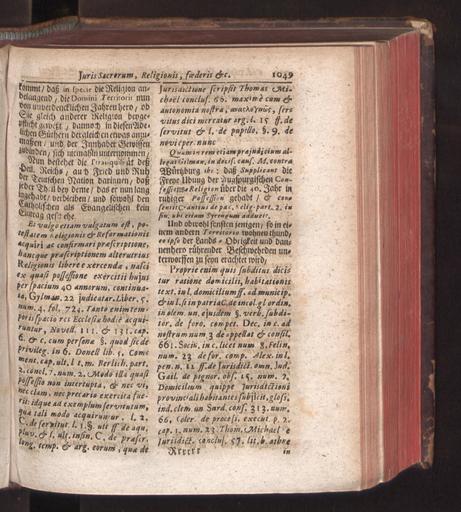 Juris Sacrorum, Religionis, fœderis &c. 1049
kommt / daß in specie die Religion an-
belangend / die Domini Territorii nun
von unverdencklichen Jahren hero / ob
Sie gleich anderer Religion
gewest / dannoch in diesen Ade-
lichen Güthern dergleichen etwas anzu-
massen / und der Innhaber Gewissen
zubinden / sich niemahln unternommen /
Nun bestehet die deß
Reichs / auch Fried und Ruh
der Teutschen Nation darinnen / daß
jeder Theil bey deme / das er nun lang
gehabt / verbleiben / und sowohl den
Catholischen als Evangelischen kein
Eintrag geschehe.
Et vulgo etiam vulgatum est, po-
testatem Religionis & Reformationis
acquiri ac confirmari præscriptione,
hancque præscriptionem alterutrius
Religionis libere exercendæ, nasci
ex quasi possessione exercitii hujus
per spacium 40 annorum, continua-
ta, Gylman. 22 judicatar. Liber. 5.
num. 4. fol. 724. Tanto enim tem-
poris spacio res Ecclesiæ hodie acqui-
runtur, Novell. 111. & 131. cap.
6. & c. cum personæ §. quod sic de
privileg. in 6. Donell lib. 5. Com-
ment. cap. ult. l. 1. m. Berlich. part.
2. concl. 7. num. 2. Modo illa quasi
possessio non interrupta, & nec vi,
nec clam, nec precario exercita fue-
rit: idque ad exemplum servitutum,
qua tali modo acquiruntur. l. 2.
C. de servitut. l. 1. §. ult. ff. de aqu.
pluv. & l. ult. in fin. C. de præscr.
long. temp. & arg. eorum, quæ de
Jurisdictione scripsit Thomas Mi-
chaël conclus. 60. maximè cum &
autonomia nostra, ser-
vitus dici mereatur arg. l. 15. ff. de
servitut & l. de pupillo, §. 9. de
novi oper. nunc.
Quam in rem etiam præjudicium al-
legat Gilman, in decis. caus. M. contra
Würtzburg ibi: daß Supplicant die
Freye Ubung der Augspurgischen Con-
fessions Religion über die 40. Jahr in
ruhiger Possession gehabt / & con-
sentit Cantius de pac. relig. part. 2. in
fin. ubi etiam Syrengum adducit.
Und obwohl sonsten jenigen / so in ei-
nem andern Territorio wohnen thund /
eo ipso der Lands-Obrigkeit und dan-
nenhero rührender Beschwehrden un-
terworffen zu seyn erachtet wird;
Proprie enim quis subditus dici-
tur ratione domicilii, habitationis
text. in l. domicilium ff. ad municip.
& in l. si in patria C. de incol. gl. ordin.
in clem. un. ejusdem §. verb. subdi-
tor. de foro. compet. Dec. in c. ad
nostram num 3 de appellat & consil.
661. Socin. in c. licet num 8. Felin.
num. 23 de for. comp. Alex. in l.
pen. n. 12 ff. de Jurisdict. omn. Jud.
Gail. de pignor. obs. 15. num. 2.
Domicilium quippe Jurisdictioni
provinciali habitantes subjicit, gloss.
ind. clem. un Sard. cons. 313. num.
66. Coler. de process. execut. p. 2.
cap. 1. num. 23. Thom. Michaël e
Jurisdict. conclus. 57. lit. b. absre
Rrrrrr in